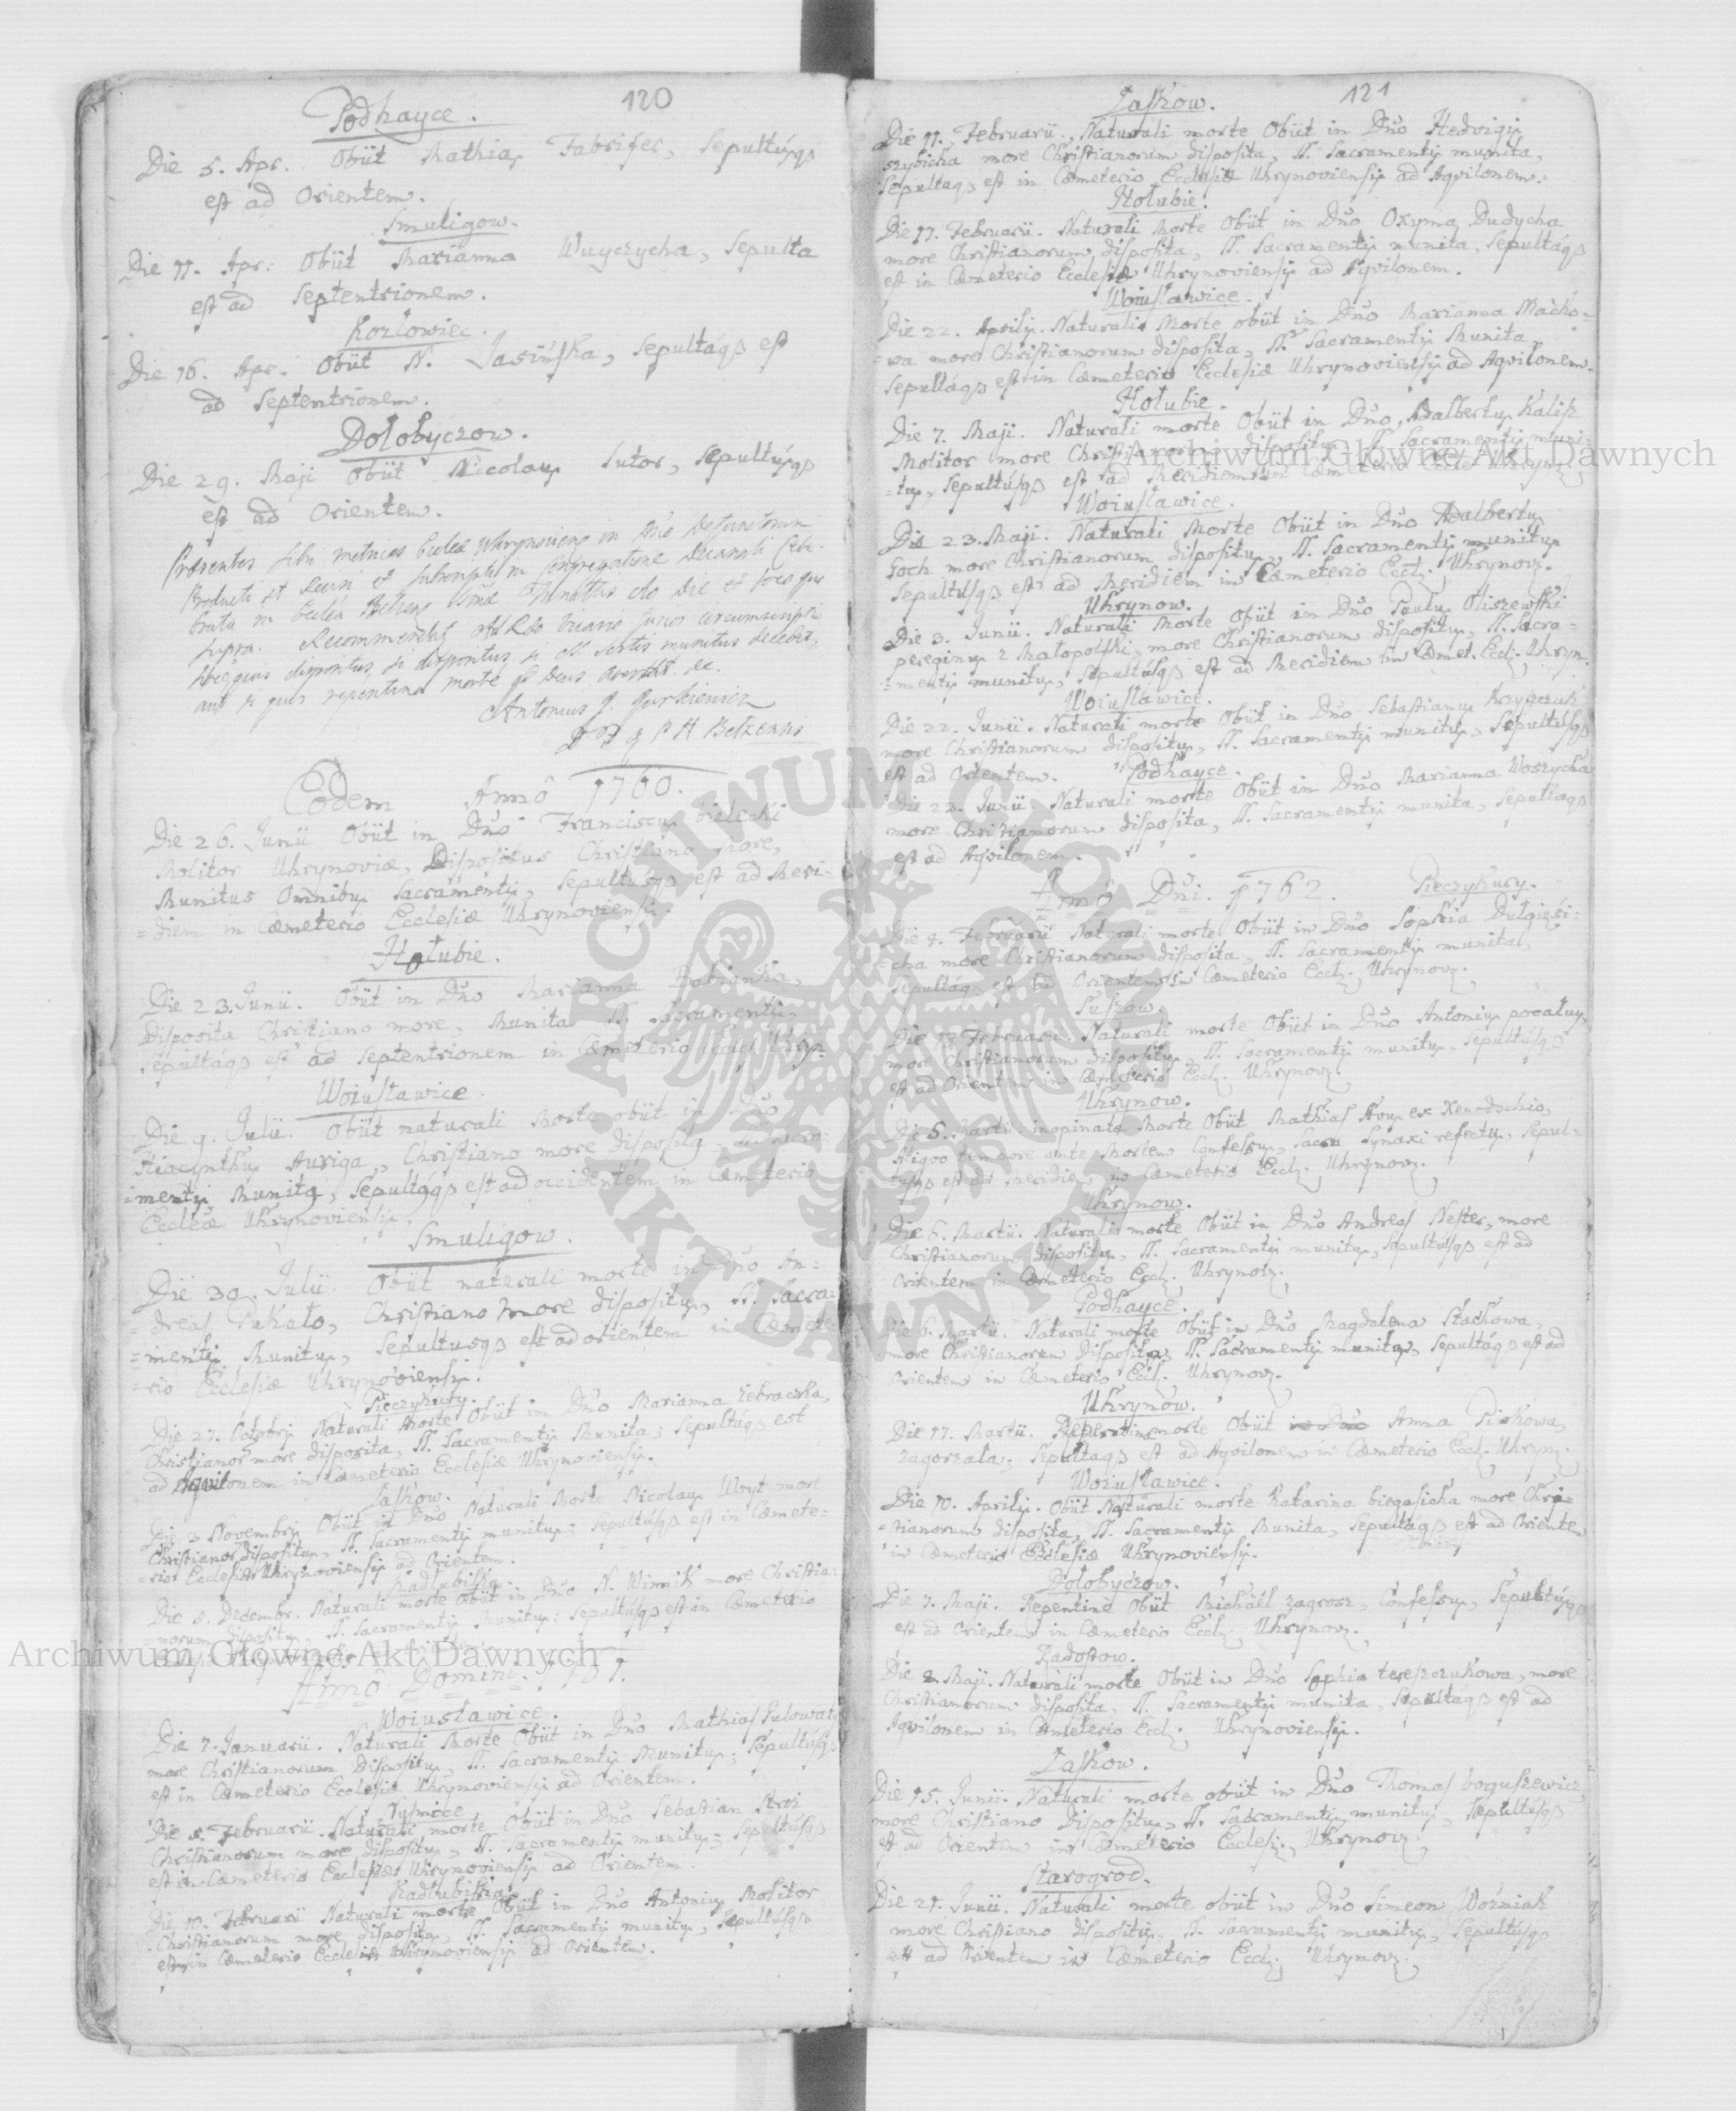 120
Podhayce.
Die 5. Apr. Obiit Mathias Fabrifer, Sepultúsqs
est ad Orientem.
Smuligow.
Die 11. Apr: Obiit Marianna Wuyczycha, Sepulta
est ad Septentrionem.
Kozlowiec.
Die 16. Apr. Obiit N. Jasińska, Sepultáqs est
ad Septentrionem.
Dołobyczow.
Die 29. Maji Obiit Nicolaus Sutor, Sepultúsqs
est ad Orientem.
Præsentes Libri metrices Eccleæ Uhrynoviens in Dño Defunctorum
Producti et lecti et subscripti in Congregatione Decanali Cele-
brata in Ecclea Belzens die et loco quo
supra. Recommendat
aut si quis repentina morte Deus avertat &c.
Antonius
Belzensis
Eodem Anno 1760.
Die 26. Junii Obiit in Dño Franciscus bielecki
Molitor Uhrynoviæ, Dispositus Christiano More,
Munitus Omnibus Sacramentis, Sepultúsqs est ad Meri-
=diem in Cæmeterio Ecclesiæ Uhrynoviensis.
Hołubie.
Die 23. Junii. Obiit in Dño Marianna
Disposita Christiano more, Munita SS. Sacramentis,
Sepultáqs est ad Septentrionem in Cæmeterio Eccles. Uhryn.
Woiusławice.
Die 9. Julii. Obiit naturali Morte obiit in Dño
Hiacynthus Auriga, Christiano more disposit9 Sacra-
=mentis Munit9, Sepultqqs est ad occidentem in Cæmeterio
Eccleæ Uhrynoviensis.
Smuligow.
Die 30. Julii. Obiit naturali morte in Dño An-
=dreas Pukało, Christiano more dispositus, SS. Sacra-
=mentis Munitus, Sepultusqs est ad orientem in Cæmete-
=rio Ecclesiæ Uhrynoviensis.
Pieczykury.
Die 27. Octobris Naturali Morte Obiit in Dño Marianna żebraczka,
Christianor more disposita, SS. Sacramentis Munita; Sepultáqs est
ad Aquilonem in Cæmeterio Ecclesiæ Uhrynoviensis.
Żaszkow.
Die 3 Novembris Obiit in Dño Naturali Morte Nicolaus Woyt more
Christianor dispositus, SS. Sacramentis munitus; Sepultúsqs est in Cæmete-
=rio Ecclesiæ Uhrynoviensis ad Orientem.
Kadłubiska.
Die 8. Decembr. Naturali morte Obiit in Dño N. Winnik more Christia-
=norum dispositus, SS. Sacramentis Munitus; Sepultúsqs est in Cæmeterio
Anno Domini 1761.
Woiusławice.
Die 7. Januarii. Naturali Morte Obiit in Dño Mathias
more Christianorum Dispositus, SS. Sacramentis Munitus; Sepultúsqs
est in Cæmeterio Ecclesiæ Uhrynoviensis ad Orientem.
Die 5. Februarii. Naturali morte Obiit in Dño Sebastian
Christianorum more dispositus, SS. Sacramentis munitus; Sepultúsqs
est in Cæmeterio Ecclesiæ Uhrynoviensis ad Orientem.
Kadłubiska.
Die 10. Februarii Naturali morte Obiit in Dño Antonius Molitor
Christianorum more dispositus, SS. Sacramentis munitus, Sepultúsqs
est in Cæmeterio Ecclesiæ Uhrynoviensis ad Orientem.
121
Żaszkow.
Die 11. Februarii., Naturali morte Obiit in Dño Hedvigis
more Christianorum disposita, SS. Sacramentis munita,
Sepultaqs est in Cæmeterio Ecclesiæ Uhrynoviensis ad Aqvilonem.
Hołubie.
Die 17. Februarii. Naturali Morte Obiit in Dño Oxyma Dudycha
more Christianorum disposita, SS. Sacramentis munita, Sepultáqs
est in Cæmeterio Ecclesiæ Uhrynoviensis ad Aqvilonem.
Woiusławice.
Die 22. Aprilis. Naturali Morte obiit in Dño Marianna Maćko-
=wa more Christianorum disposita, SS. Sacramentis Munita,
Sepultáqs est in Cæmeterio Ecclesiæ Uhrynoviensis ad Aqvilonem.
Hołubie.
Die 7. Maji. Naturali morte Obiit in Dño Adalbertus Kalisz
Molitor more Christianorum dispositus, SS. Sacramentis muni-
=tus, Sepultúsqs est ad Meridiem in Cæmeterio Eccle Uhryn.
Woiusławice.
Die 23. Maji. Naturali Morte Obiit in Dño Adalbertus
Goch more Christianorum dispositus, SS. Sacramentis munitus
Sepultúsqs est ad Meridiem in Cæmeterio Eccl. Uhrynov.
Uhrynow.
Die 3. Junii. Naturali Morte Obiit in Dño Paulus Oliszewski
peregrinus z Małopolski, more Christianorum dispositus, SS. Sacra-
=mentis munitus, Sepultúsqs est ad Meridiem in Cæmet. Eccl. Uhryn.
Woiusławice.
Die 22. Junii. Naturali morte Obiit in Dño Sebastianus Krzyszczuk
more Christianorum dispositus, SS. Sacramentis munitus, Sepultúsqs
est ad Orientem.
Podhayce.
Die 22. Junii. Naturali morte Obiit in Dño Marianna Woszycha
more Christianorum disposita, SS. Sacramentis munita, Sepultaqs
est ad Aqvilonem.
Anno Dñi. 1762. Pieczykury.
Die 4. Februarii Naturali morte Obiit in Dño Sophia
cha more Christianorum disposita, SS. Sacramentis munita,
Sepultáqs est ad Orientem in Cæmeterio Eccl. Uhrynov.
Die 13 Februarii Naturali morte Obiit in Dño Antonius
more Christianorum dispositus, SS. Sacramentis munitus, Sepultúsqs
est ad Orientem in Cæmeterio Eccl. Uhrynov.
Uhrynow.
Die 5. Martii. inopinata Morte Obiit Mathias
Aliqvo tempore ante Mortem Confessus, Sacra Synaxi refectus, Sepul-
tusqs est ad Meridiem in Cæmeterio Eccl. Uhrynov.
Uhrynow.
Die 6. Martii. Naturali morte Obiit in Dño Andreas Nester, more
Christianorum dispositus, SS. Sacramentis munitus, Sepultúsqs est ad
Orientem in Cæmeterio Eccl. Uhrynov.
Podhayce.
Die 6. Martii. Naturali morte Obiit in Dño Magdalena Stachowa,
more Christianorum disposita, SS. Sacramentis munita, Sepultáqs est ad
Orientem in Cæmeterio Eccl. Uhrynov.
Uhrynow.
Die 17. Martii. Repentina morte Obiit in Dño Anna
zagorzala; Sepultaqs est ad Aqvilonem in Cæmeterio Eccl. Uhryn.
Woiusławice.
Die 10. Aprilis. Obiit Naturali morte Katarina biegasicha more Chri-
=stianorum disposita, SS. Sacramentis Munita, Sepultáqs est ad Orientem
in Cæmeterio Ecclesiæ Uhrynoviensis.
Dołobyczow.
Die 7. Maji. Repentine Obiit Michael Zagrosz, Confessus, Sepultúsqs
est ad Orientem in Cæmeterio Eccl. Uhrynov.
Radostow.
Die Maji. Naturali morte Obiit in Dño Sophia tereszczukowa, more
Christianorum disposita, SS. Sacramentis munita, Sepultáqs est ad
Aqvilonem in Cæmeterio Eccl. Uhrynoviensis.
Żaszkow.
Die 15. Junii. Naturali morte obiit in Dño Thomas boguszewicz,
more Christiano dispositus, SS. Sacramentis munitus, Sepultúsqs
est ad Orientem in Cæmeterio Eccles. Uhrynov.
Starogrod.
Die 21. Junii. Naturali morte obiit in Dño Simeon Woźniak
more Christiano dispositus, SS. Sacramentis munitus, Sepultúsqs
est ad Orientem in Cæmeterio Eccl. Uhrynov.
Archiwum Główne Akt Dawnych
Archiwum Główne Akt Dawnych
ARCHIWUM GŁÓWNE AKT DAWNYCH